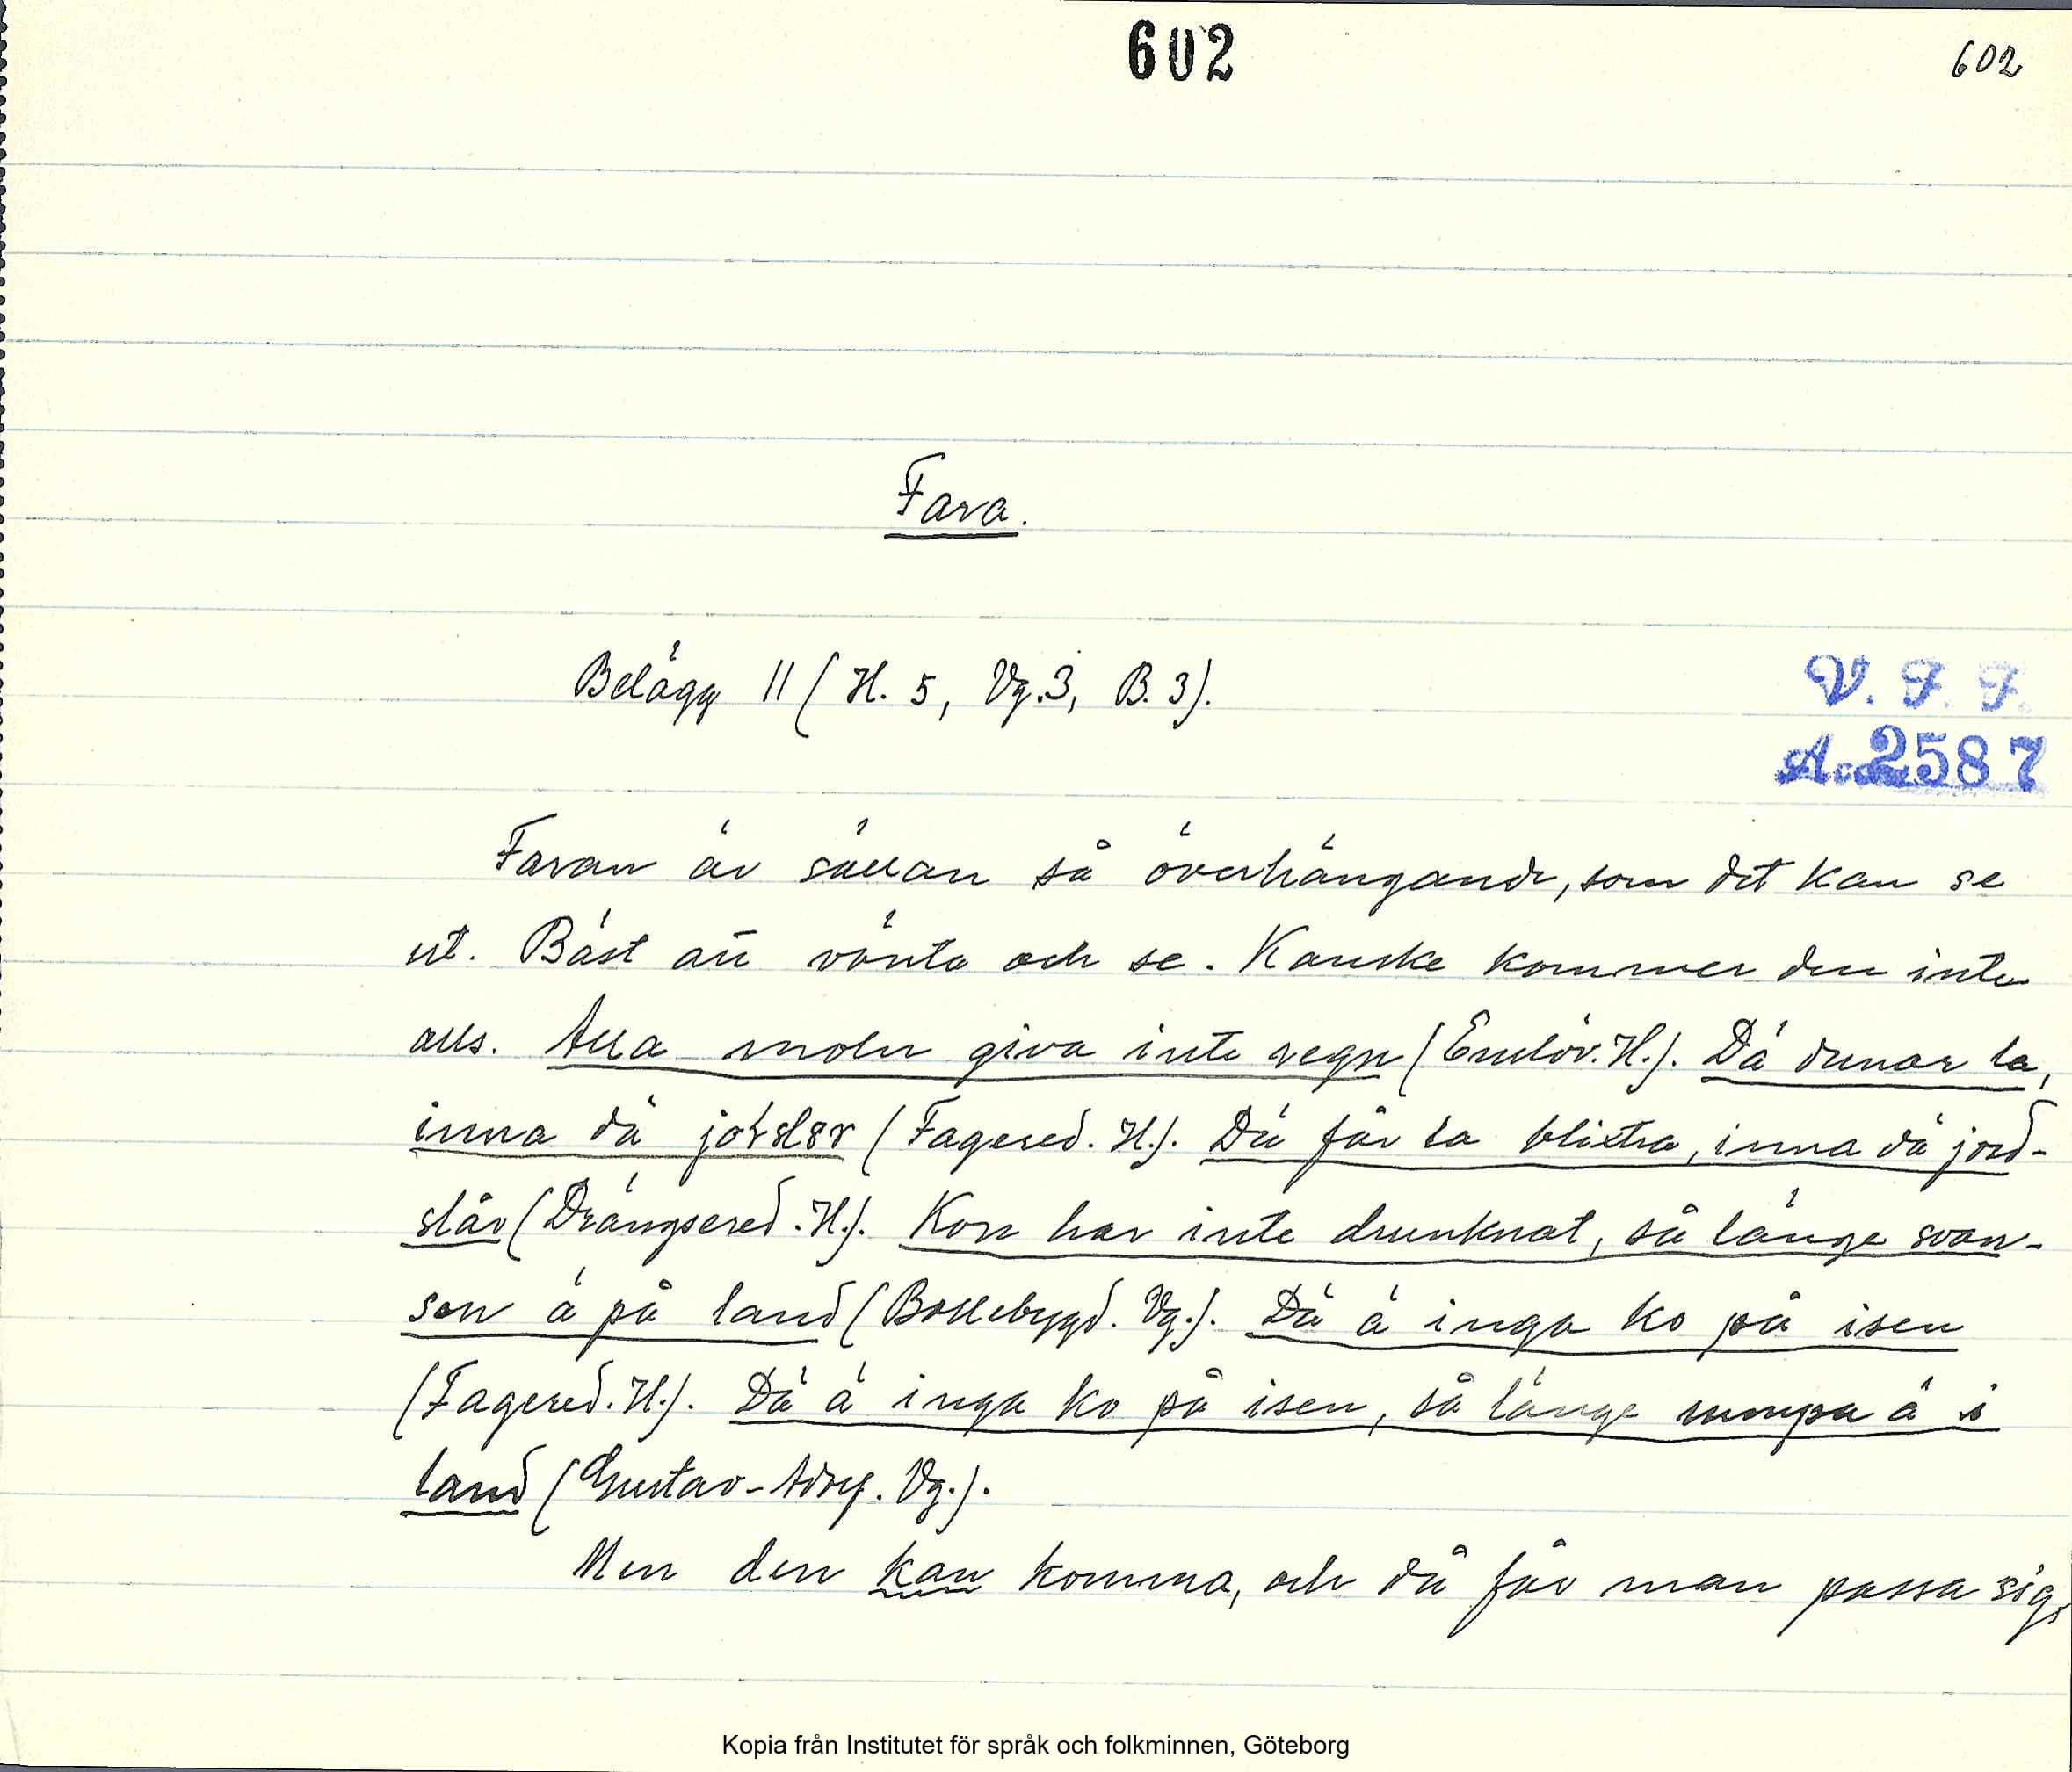 602
602
Fara.
Belägg 11 (H. 5, Vg. 3, B. 3).
V. F. F.
Acc. 2587
Faran är sällan så överhängande, som det kan se
ut. Bäst att vänta och se. Kanske kommer den inte
alls. Alla moln giva inte regn (Enslöv. H.). Dä dunar la,
inna dä jolslår (Fagered. H.). Dä får la blixtra, inna dä jord-
slår (Drängsered. H.). Kon har inte drunknat, så länge svan-
sen ä på land (Bollebygd. Vg.). Dä ä inga ko på isen
(Fagered. H.). Dä ä inga ko på isen, så länge rumpa ä i
land (Gustav-Adolf. Vg.).
Men den kan komma, och då får man passa sig,
Kopia från Institutet för språk och folkminnen, Göteborg